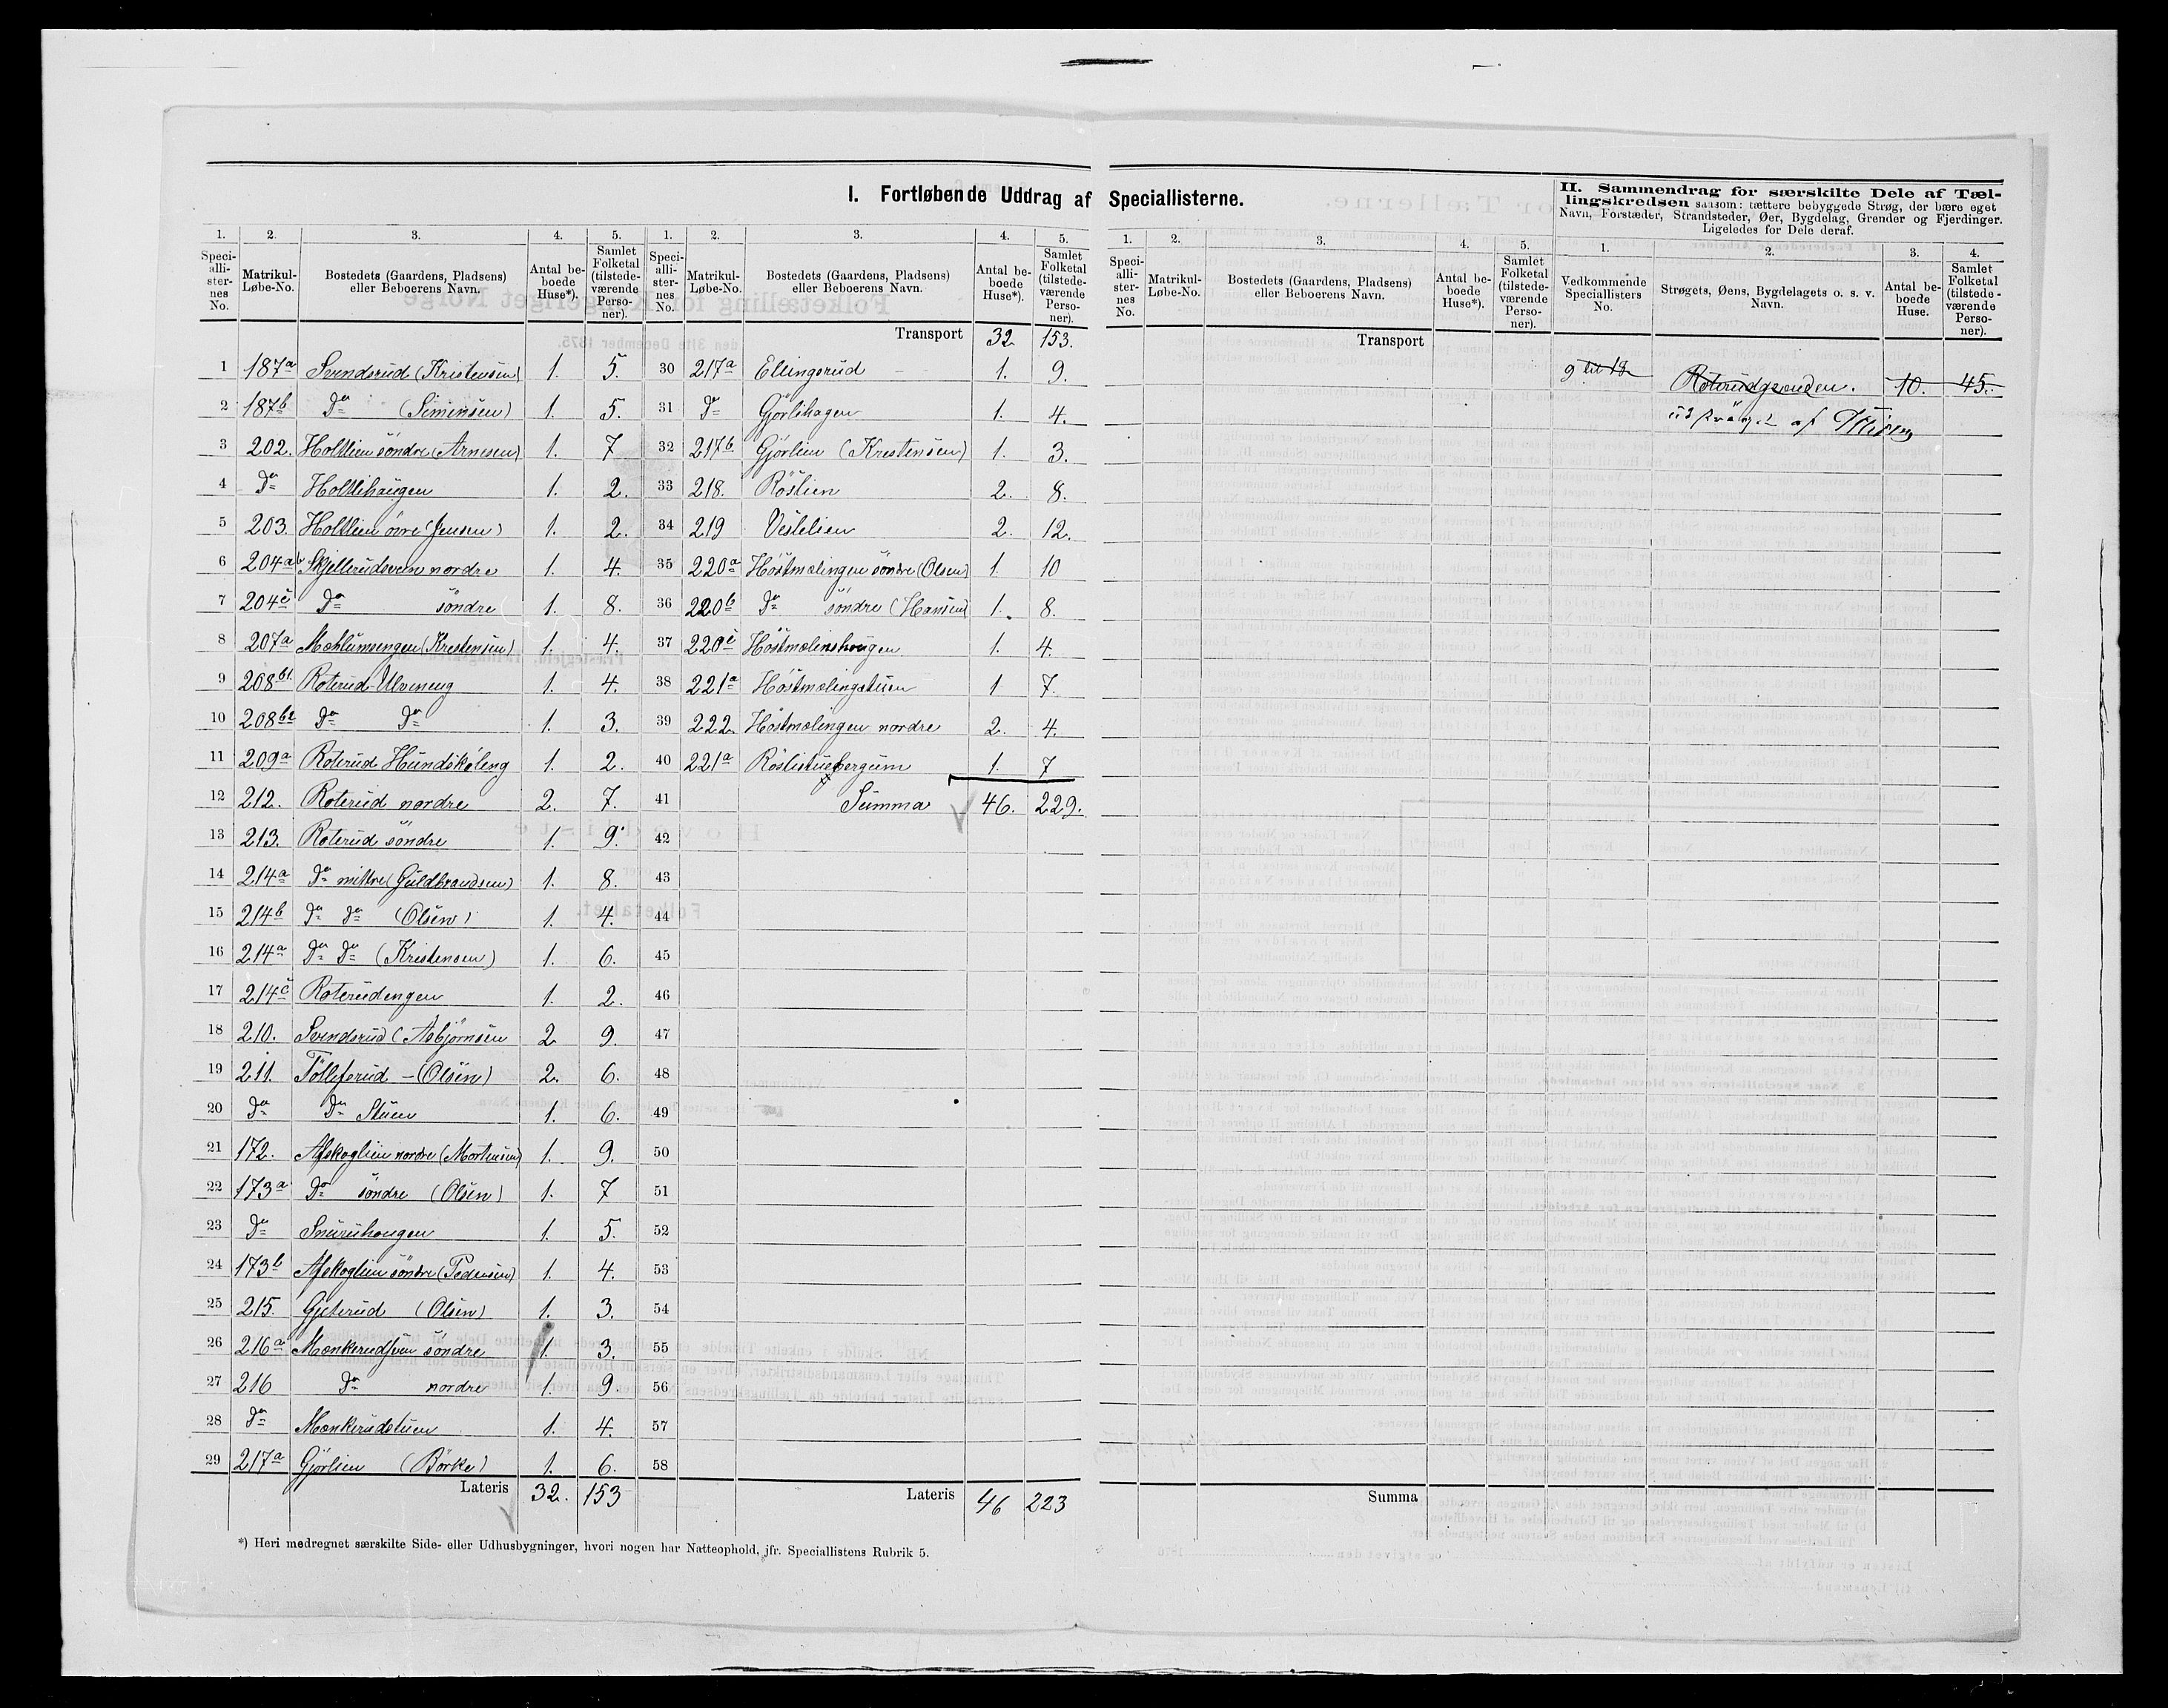 I. Fortløbende Uddrag af Speciallisterne.
II. Sammendrag for særskilte Dele af Tæl-
lingskredsen saasom: tættere bebyggede Strøg, der bære eget
Navn, Forstæder, Strandsteder, Øer, Bygdelag, Grender og Fjerdinger.
Ligeledes for Dele deraf.
1. 2. 3. 4. 5. 1. 2. 3. 4. 5. 1. 2. 3. 4. 5. 1. 2. 3. 4.
Speci-alli-ster-nes No. Matrikul-Løbe-No. Bostedets (Gaardens, Pladsens) eller Beboerens Navn. Antal be-boede Huse*). Samlet Folketal (tilstede-værende Perso-ner).
Speci-alli-ster-nes No. Matrikul-Løbe-No. Bostedets (Gaardens, Pladsens) eller Beboerens Navn. Antal be-boede Huse*). Samlet Folketal (tilstede-værende Perso-ner).
Speci-alli-ster-nes No. Matrikul-Løbe-No. Bostedets (Gaardens, Pladsens) eller Beboerens Navn. Antal be-boede Huse*). Samlet Folketal (tilstede-værende Perso-ner).
Vedkommende Speciallisters No. Strøgets, Øens, Bygdelagets o. s. v. Navn. Antal be-boede Huse. Samlet Folketal (tilstede-værende Perso-ner).
1 187a Svendsrud (Kristensen) 1. 5.
2 187b Do (Simensen) 1. 5.
3 202. Holtlien søndre (Arnesen) 1. 7
4 Do Holtlihaugen 1. 2.
5 203. Holtlien øvre (Jensen) 1. 2.
6 204ab Skjellerudsveen nordre 1. 4.
7 204c Do søndre 1. 8.
8 207a Mæhlumsengen (Kristensen) 1. 4.
9 208b1 Roterud-Ulveneng 1. 4.
10 208b2 Do Do 1. 3.
11 209a Roterud Hundskøleng 1. 2.
12 212. Roterud nordre 2. 7.
13 213. Roterud søndre 1. 9.
14 214a Do mittre (Guldbrandsen) 1. 8.
15 214b Do Do (Olsen) 1. 4.
16 214a Do Do (Kristensen) 1. 6.
17 214c Roterudengen 1. 2.
18 210. Svendsrud (Asbjørnsen 2 9.
19 211. Tollefsrud - (Olsen) 2. 6.
20 Do Do Stuen 1. 6.
21 172. Afskoglien nordre (Mortensen) 1. 9.
22 173a Do søndre (Olsen) 1. 7
23 Do Snuruhougen 1. 5.
24 173b Afskoglien søndre (Pedersen) 1. 4.
25 215. Gjeterud (Olsen) 1. 3.
26 216a Mænkerudsveen søndre 1. 3.
27 216 Do nordre 1. 9.
28 Do Mænkerudstuen 1. 4.
29 217a Gjørlien (Børke) 1. 6.
Lateris 32. 153
Transport 32 153.
30 217a Ellingsrud 1. 9.
31 Do Gjørlihagen 1. 4.
32 217b Gjørlien (Kristensen) 1. 3.
33 218. Røslien 2. 8.
34 219 Vestlien 2. 12.
35 220a Høstmælingen søndre (Olsen) 1. 10
36 220b Do søndre (Hansen) 1. 8.
37 220c Høstmælinshougen 1. 4.
38 221a Høstmælingstuen 1 7.
39 222. Høstmælingen nordre 2. 4.
40 221a Røslistuebergum 1. 7
41 Summa 46. 229.
42
43
44
45
46
47
48
49
50
51
52
53
54
55
56
57
58
Lateris 46 223
Transport
Summa
9 til 18 Roterudgrenden. 10. 45.
*) Heri medregnet særskilte Side- eller Udhusbygninger, hvori nogen har Natteophold, jfr. Speciallistens Rubrik 5.